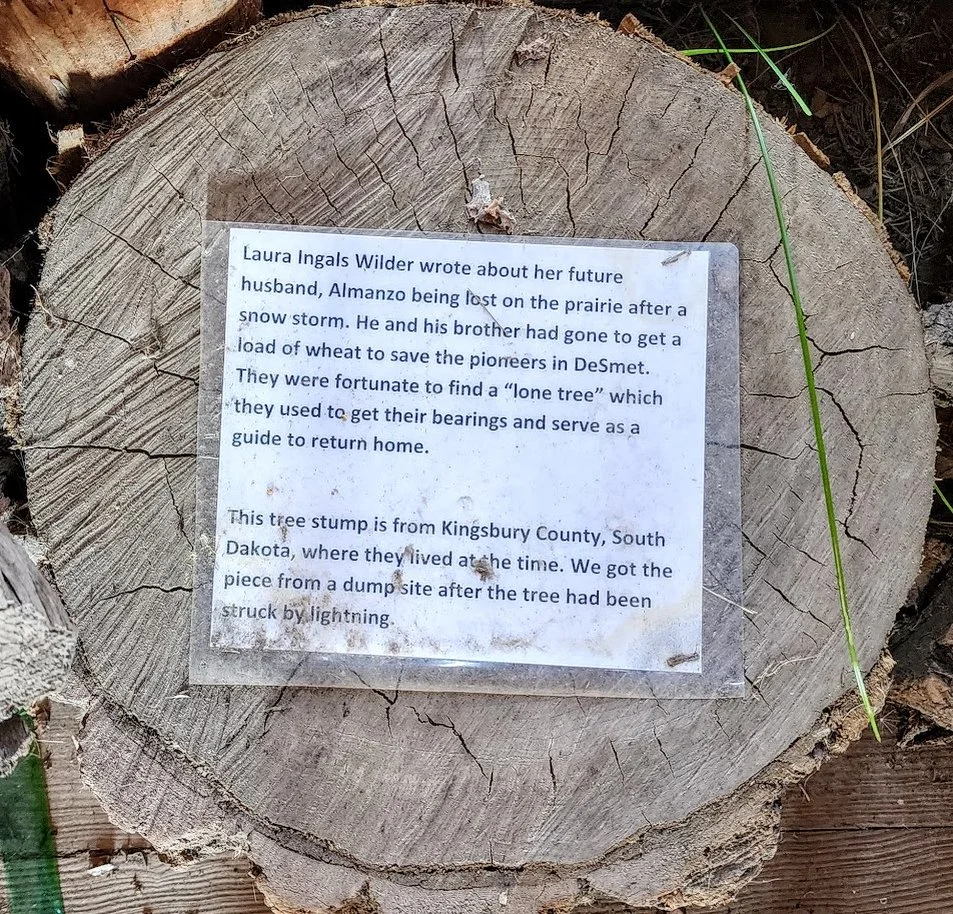 Laura Ingals Wilder wrote about her future
husband, Almanzo being lost on the prairie after a
snow storm. He and his brother had gone to get a
load of wheat to save the pioneers in DeSmet.
They were fortunate to find a “lone tree” which
they used to get their bearings and serve as a
guide to return home.
This tree stump is from Kingsbury County, South
Dakota, where they lived at the time. We got the
piece from a dump site after the tree had been
struck by lightning.